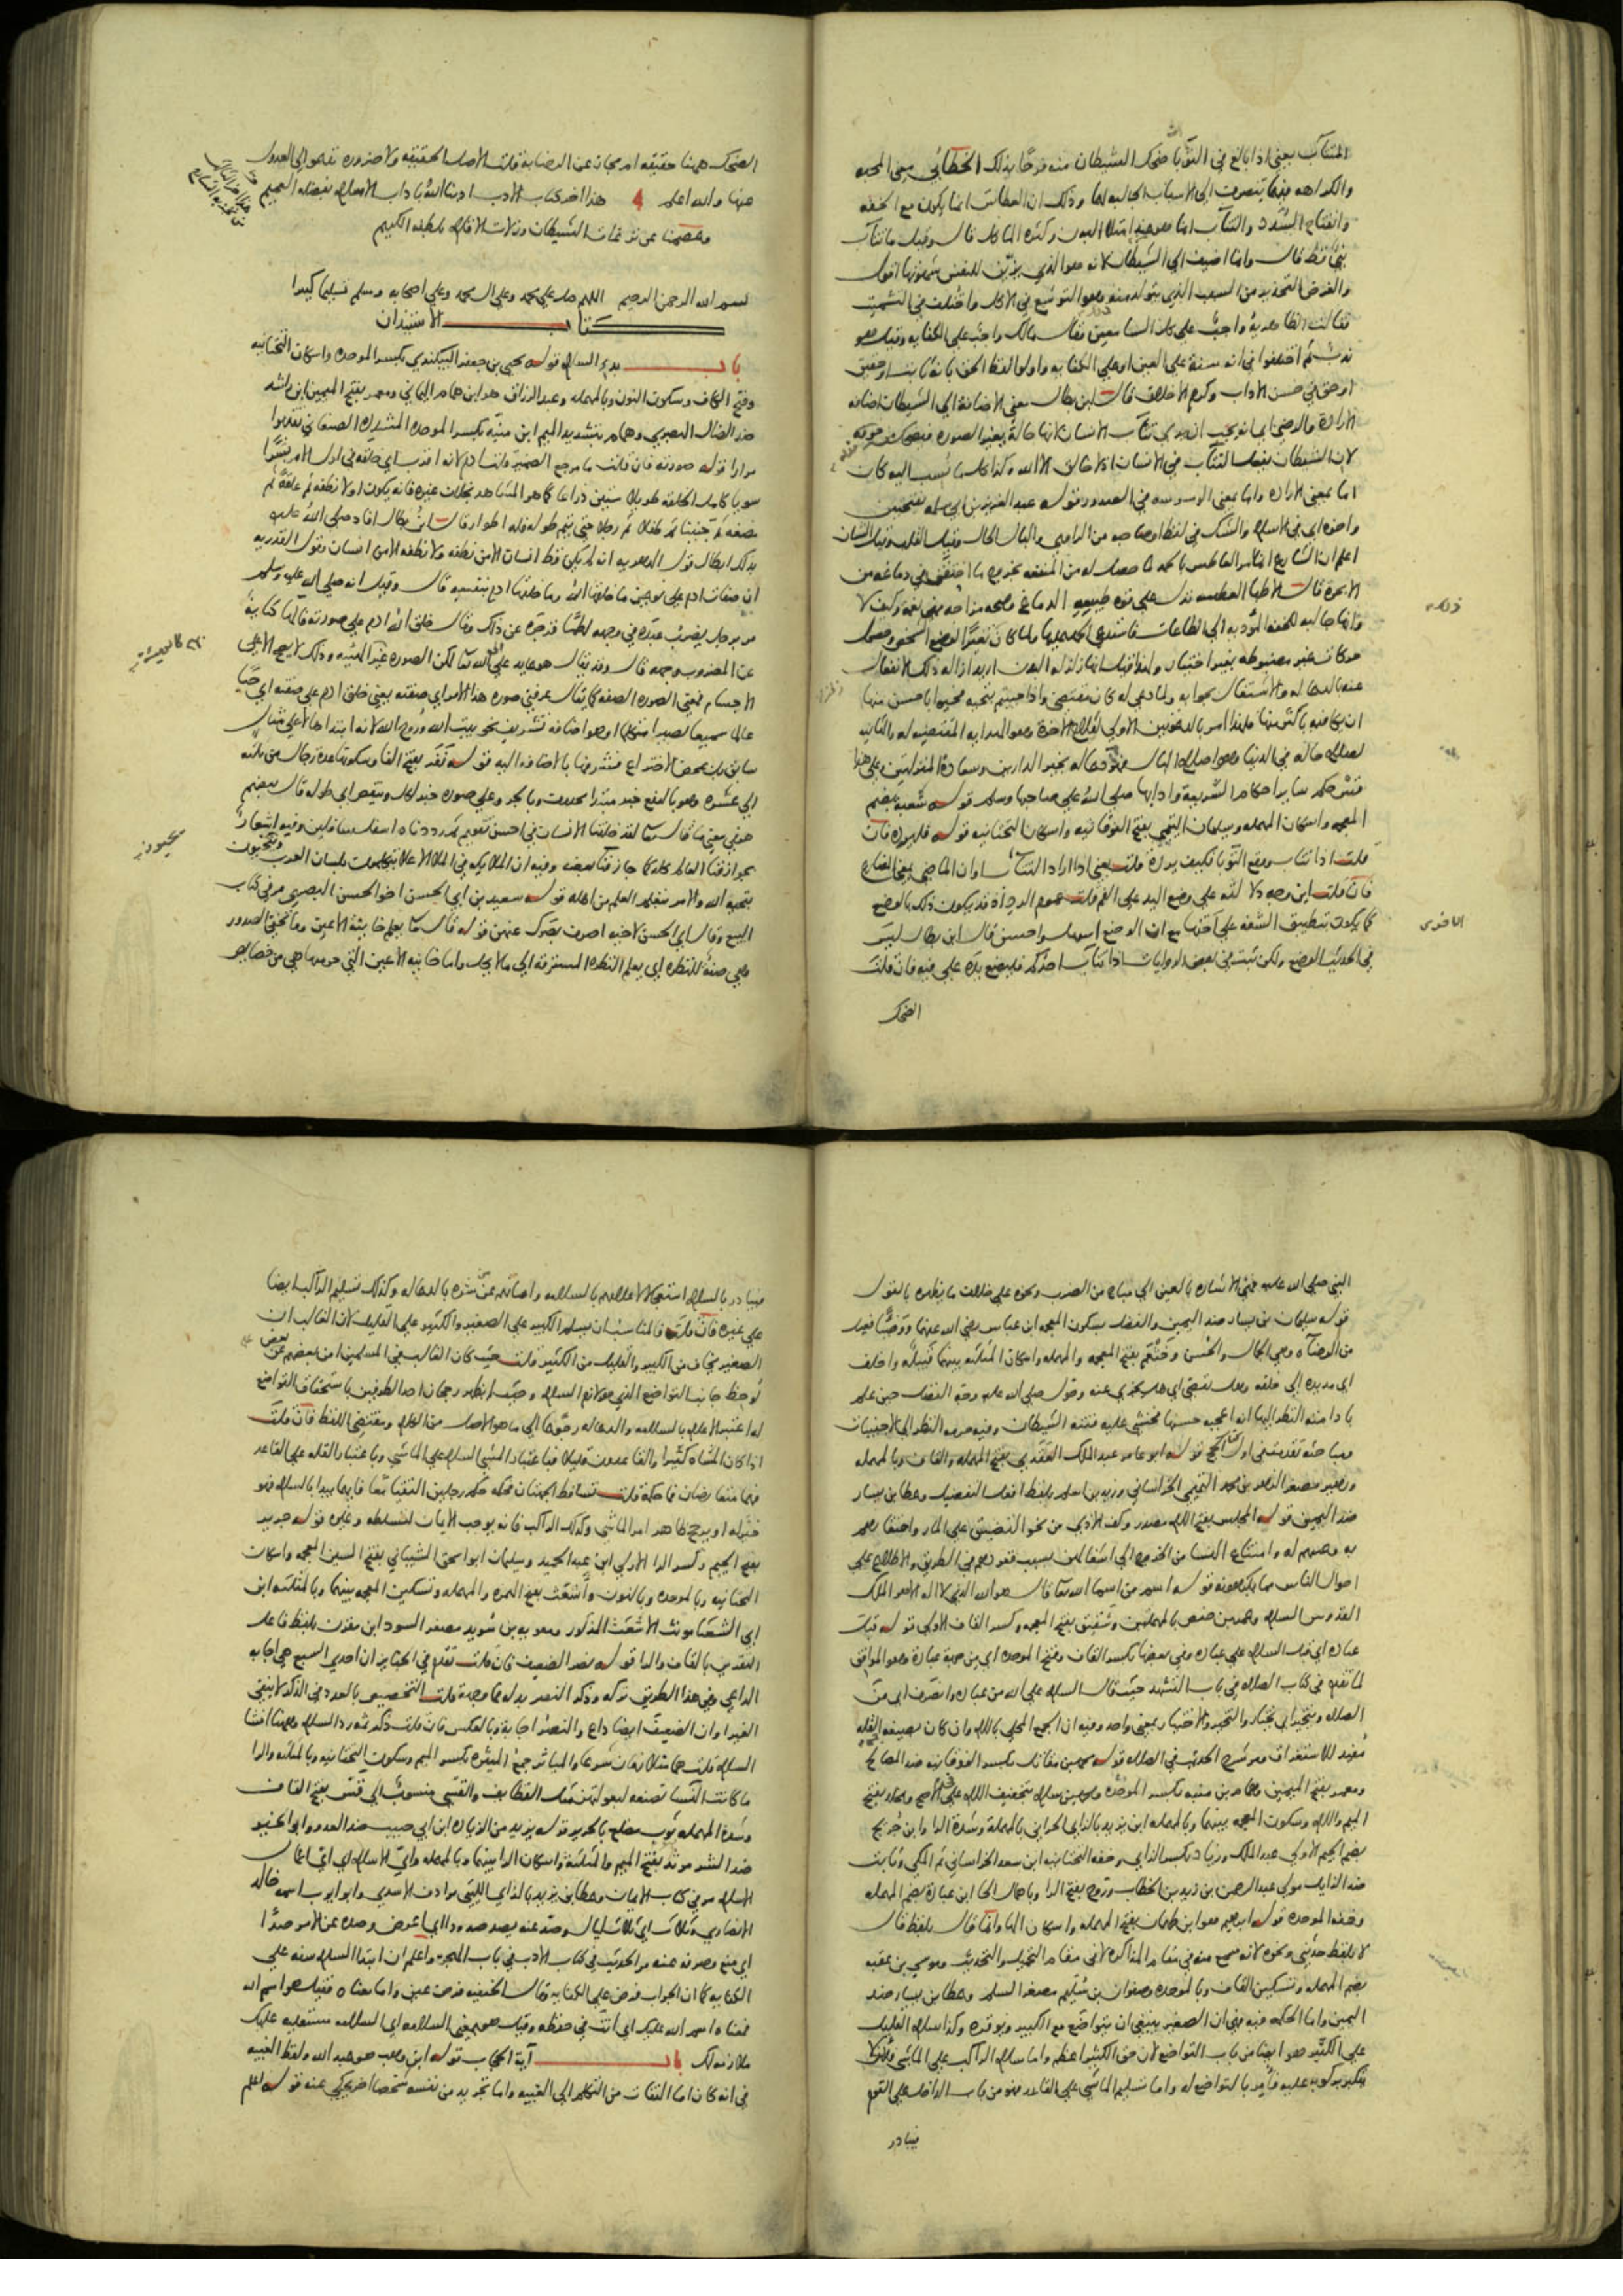 المتثآب يعني اذا بالغ في الثوبا ضحك الشيطان منه فرحا بذلك الخطابي معنى المحبه
والكراهه فيهما ينصرف الى الاسباب الجالبه لهما وذلك ان العطاس انما يكون مع الخفه
وانفتاح السدد والتثآب انما هو عند امتلا البدن وكثره الماكل قال وقيل ما تثآب
نبي قط قال وانما اضيف الى الشيطان لانه هو الذي يزين للنفس شهوتها اقول
والغرض التحذير من السبب الذي يتولد منه وهو التوسع في الاكل واختلف في التشميت
فقالت الظاهريه واجب على كل السامعين وقال مالك واجب على الكفايه وقيل هو
ندب ثم اختلفوا في انه سنة على العين او على الكفايه واولوا لفظ الحق بانه
او حق في حسن الاداب وكرم الاخلاق قال ابن بطال معنى الاضافة الى الشيطان اضافه
الارادة والرضى اي انه يحب ان يرى تثآب الانسان لانها حالة تغير الصورة فيضحك من جوفه
لان الشيطان يفعل التثآب في الانسان اذ لا خالق الا الله وكذا كل ما نسب اليه كان
اما بمعنى الاراده واما بمعنى الوسوسه في الصدور قوله عبد العزيز بن ابي سلمه بفتحتين
واخوه اي في الاسلام والشك في لفظ او صاحبه من الراوي والبال الحال وقيل القلب وقيل الشان
اعلم ان الشارع انما امر العاطس بالحمد لما حصل له من المنفعه بخروج ما اختنق في دماغه من
الابخرة قالت الاطبا العطسه تدل على قوه طبيعه الدماغ وصحه مزاجه فهي نعمه وكيف لا
وانها جالبه للخفه المؤديه الى الطاعات فاستدعى الحمد عليها ولما كان تغيرا لوضع الشخص وحصول
حركات غير مضبوطه بغير اختيار ولهذا قيل انها زلزله البدن اريد ازاله ذلك الانفعال
عنه بالدعا له والاشتغال بجوابه ولما دعي له كان مقتضى واذا حييتم بتحيه فحيوا باحسن منها
ان يكافيه باكثر منها فلهذا امر بالدعوتين الاولى لفلاح الاخرة وهو الهدايه المقتضيه له والثانيه
لصلاح حاله في الدنيا وهو اصلاح البال فهو دعا له بخير الدارين وسعادة المنزلتين وعلى هذا
فقس حكم ساير احكام الشريعة وادابها صلى الله على صاحبها وسلم قوله شعبه بضم
المعجمه واسكان المهمله وسليمان التيمي بفتح الفوقانيه واسكان التحتانيه قوله فليرده فان
قلت اذا تثاب وقع الثوبا فكيف يرده قلت يعني اذا اراد التثاب او ان الماضي بمعنى المضارع
فان قلت اين وجه دلالته على وضع اليد على الفم قلت عموم الرد اذ قد يكون ذلك بالوضع
كما يكون بتطبيق الشفه على اختها مع ان الوضع اسهل واحسن قال ابن بطال ليس
في الحديث الوضع ولكن ثبت في بعض الروايات اذا تثآب احدكم فليضع يده على فيه فان قلت
الضحك
الضحك ههنا حقيقه ام مجاز عن الرضا به قلت الاصل الحقيقه ولا ضروره تدعو الى العدول
عنها والله اعلم هذا اخر كتاب الادب ادبنا الله باداب الاسلام بفضله العميم
وعصمنا عن نزغات الشيطان وزلات الاقدام بلطفه الكريم
بسم الله الرحمن الرحيم اللهم صل على محمد وعلى ال محمد وعلى اصحابه وسلم تسليما كثيرا
كتاب الاستئذان
باب بدء السلام قوله يحيى بن جعفر البيكندي بكسر الموحده واسكان التحتانيه
وفتح الكاف وسكون النون وبالمهمله وعبد الرزاق هو ابن همام اليماني ومعمر بفتح الميمين ابن راشد
ضد الضال البصري وهمام بتشديد الميم ابن منبه بكسر الموحده المشدده الصنعاني تقدموا
مرارا قوله صورته فان قلت ما مرجع الضمير قلت ادم لانه اقرب اي خلقه في اول الامر بشرا
سويا كامل الخلقه طويلا ستين ذراعا كما هو المشاهد بخلاف غيره فانه يكون اولا نطفه ثم علقة ثم
مضغه ثم جنينا ثم طفلا ثم رجلا حتى يتم طوله فله اطوار قال ابن بطال افاد صلى الله عليه
بذلك ابطال قول الدهريه انه لم يكن قط انسان الا من نطفه ولا نطفه الا من انسان وقول القدريه
ان صفات ادم على نوعين ما خلقها الله وما خلقها ادم بنفسه قال وقيل انه صلى الله عليه وسلم
مر برجل يضرب عبده في وجهه لطما فزجره عن ذلك وقال خلق الله ادم على صورته فالها كناية
عن المضروب وجهه قال وقد يقال هو عايد على الله تعالى لكن الصوره هي الهيئه وذلك لا يصح الا على
الاجسام فمعنى الصوره الصفه كما يقال عرفني صوره هذا الامر اي صفته يعني خلق ادم على صفته اي حيا
عالما سميعا بصيرا متكلما او هو اضافه تشريف نحو بيت الله وروح الله لانه ابتداها لا على مثال
سابق بل بمحض الاختراع فشرفها بالاضافه اليه قوله نفر بفتح الفا وسكونها عدة رجال من ثلثه
الى عشره وهو بالرفع خبر مبتدا محذوف وبالجر وعلى صوره خبر لكل وينقص اي طوله قال بعضهم
هو في معنى ما قال تعالى لقد خلقنا الانسان في احسن تقويم ثم رددناه اسفل سافلين وفيه اشعار
بجواز فنا العالم كله كما جاز فنا بعضه وفيه ان الملايكه في الملا الاعلى يتكلمون بلسان العرب ويحيون
بتحيه الله والامر بتعلم العلم من اهله قوله سعيد بن ابي الحسن اخو الحسن البصري مر في كتاب
البيع وقال اي الحسن لاخيه اصرف بصرك عنهن قوله قال تعالى يعلم خاينة الاعين وما تخفي الصدور
وهي صفة للنظره اي يعلم النظره المسترقه الى ما لا يحل واما خاينه الاعين التي حرمها هي من خصايص
النبي صلى الله عليه فهي الاشاره بالعين الى مباح من الضرب ونحوه على خلاف ما يظهره بالقول
قوله سليمان بن يسار ضد اليمين والفضل بسكون المعجمه ابن عباس رضي الله عنهما ووضيا فعيل
من الوضآه وهي الجمال والحسن وخثعم بفتح المعجمه والمهمله واسكان المثلثه بينهما قبيله واخلف
اي مد يده الى خلفه وهل يقضي اي هل يجزي عنه وحول صلى الله عليه وجه الفضل حين علم
بادامته النظر اليها انه اعجبه حسنها فخشي عليه فتنه الشيطان وفيه حرمه النظر الى الاجنبيات
ومباحثه تقدمت في اول كتاب الحج قوله ابو عامر عبد الملك العقدي بفتح المهمله والقاف وبالمهمله
وزهير مصغر الزهر بن محمد التميمي الخراساني وزيد بن اسلم بلفظ افعل التفضيل وعطا بن يسار
ضد اليمين قوله المجلس بفتح اللام مصدر وكف الاذى من نحو التضييق على المار واحتقارهم
به وعيبهم له وامتناع النسا من الخروج الى اشغالهن بسبب قعودهم في الطريق والاطلاع على
احوال الناس مما يكرهونه قوله اسم من اسما الله تعالى قال هو الله الذي لا اله الا هو الملك
القدوس السلام وعمر بن حفص بالمهملتين وشقيق بفتح المعجمه وكسر القاف الاولى قوله قبل
عباده اي قبل السلام على عباده وفي بعضها بكسر القاف وفتح الموحده اي من جهة عباده وهو الموافق
لما تقدم في كتاب الصلاه في باب التشهد حيث قال السلام على الله من عباده وانصرف اي من
الصلاه ويتخير اي يختار والتخير والاختيار بمعنى واحد وفيه ان الجمع المحلى باللام وان كان بصيغه القله
مفيد للاستغراق ومر شرح الحديث في الصلاه قوله محمد بن مقاتل بكسر الفوقانيه ضد المصالح
ومعمر بفتح الميمين وهمام بن منبه بكسر الموحده ومحمد بن سلام بتخفيف اللام على الاصح ومخلد بفتح
الميم واللام وسكون المعجمه بينهما وبالمهمله ابن يزيد بالزاي الحراني بالمهملة وشدة الرا وابن جريج
بضم الجيم الاولى عبد الملك وزياد بكسر الزاي وخفه التحتانيه ابن سعد الخراساني ثم المكي وثابت
ضد الزايل مولى عبد الرحمن بن زيد بن الخطاب وروح بفتح الرا وباهمال الحا ابن عباده بضم المهمله
وخفه الموحده قوله ابراهيم هو ابن طهمان بفتح المهمله واسكان الها وانما قال بلفظ قال
لا بلفظ حدثني ونحوه لانه سمع منه في مقام المذاكره لا في مقام التحميل والتحديث وموسى بن عقبه
بضم المهمله وتسكين القاف وبالموحده وصفوان بن سليم مصغر السلم وعطا بن يسار ضد
اليمين واما الحكمه فيه فهي ان الصغير ينبغي ان يتواضع مع الكبير ويوقره وكذا سلام القليل
على الكثير هو ايضا من باب التواضع لان حق الكثير اعظم واما سلام الراكب على الماشي فلئلا
يتكبر بركوبه عليه فامر بالتواضع له واما تسليم الماشي على القاعد فهو من باب الداخل على القوم
فيبادر
فيبادر بالسلام استعجالا لاعلامهم بالسلامه وامانهم عن شره بالدعا له وكذلك تسليم الراكب ايضا
على غيره فان قلت فالمناسب ان يسلم الكبير على الصغير والكثير على القليل لان الغالب ان
الصغير يخاف من الكبير والقليل من الكثير قلت حيث كان الغالب في المسلمين امن بعضهم عن بعض
لوحظ جانب التواضع الذي هو لازم السلام وحيث لم يظهر رجحان احد الطرفين باستحقاق التواضع
له اعتبر الاعلام بالسلامه والدعا له رجوعا الى ما هو الاصل من الكلام ومقتضى اللفظ فان قلت
اذا كان المشاه كثيرا والقاعدون قليلا فباعتبار المشي السلام على الماشي وباعتبار القله على القاعد
فهما متعارضان فما حكمه قلت تساقط الجهتان فحكمه حكم رجلين التقيا معا فايهما بدا بالسلام فهو
خير له او يرجح ظاهر امر الماشي وكذلك الراكب فانه يوجب الامان لتسلطه وغيره قوله جرير
بفتح الجيم وكسر الرا الاولى ابن عبد الحميد وسليمان ابو اسحق الشيباني بفتح الشين المعجمه واسكان
التحتانيه وبالموحده وبالنون واشعث بفتح الهمزه والمهمله وتسكين المعجمه بينهما وبالمثلثه ابن
ابي الشعثا مونث الاشعث المذكور ومعويه بن سويد مصغر السود ابن مقرن بلفظ فاعل
التقرين بالقاف والرا قوله نصر الضعيف فان قلت تقدم في الجنايز ان احدى السبع هي اجابه
الداعي وفي هذا الطريق تركه وذكر النصر بدله فما وجهه قلت التخصيص بالعدد في الذكر لا ينفي
الغير او ان الضعيف ايضا داع والنصر اجابة وبالعكس فان قلت ذكر ثمه رد السلام وههنا افشا
السلام قلت هما متلازمان شرعا والمياثر جمع الميثره بكسر الميم وسكون التحتانيه وبالمثلثه والرا
ما كانت النسا تصنعه لبعولتهن مثل القطايف والقسي منسوب الى قس بفتح القاف
وشدة المهمله ثوب مضلع بالحرير قوله يزيد من الزياده ابن ابي حبيب ضد العدو وابو الخير
ضد الشر مرثد بفتح الميم والمثلثه واسكان الرا بينهما وبالمهمله واي الاسلام اي اي اعمال
الاسلام مر في كتاب الايمان وعطا بن يزيد بالزاي الليثي مرادف الاسدي وابو ايوب اسمه خالد
الانصاري وثلاث اي ثلاث ليال وصد عنه يصد صدودا اي اعرض وصده عن الامر صدا
اي منع وصرفه عنه مر الحديث في كتاب الادب في باب الهجره واعلم ان ابتدا السلام سنه على
الكفايه كما ان الجواب فرض على الكفايه وقال الحنفيه فرض عين واما معناه فقيل هو اسم الله
فمعناه اسم الله عليك اي انت في حفظه وقيل هو بمعنى السلامه اي السلامه مستعليه عليك
ملازمه لك باب آية الحجاب قوله ابن وهب هو عبد الله ولفظ الغيبه
في انه كان اما التفات من التكلم الى الغيبه واما تجريد من نفسه شخصا اخر يحكي عنه قوله اعلم